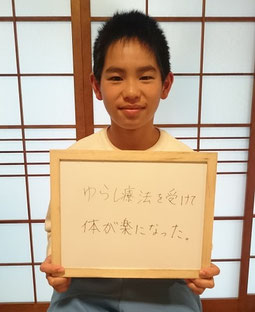 ゆらし療法を受けて
体が楽になった。